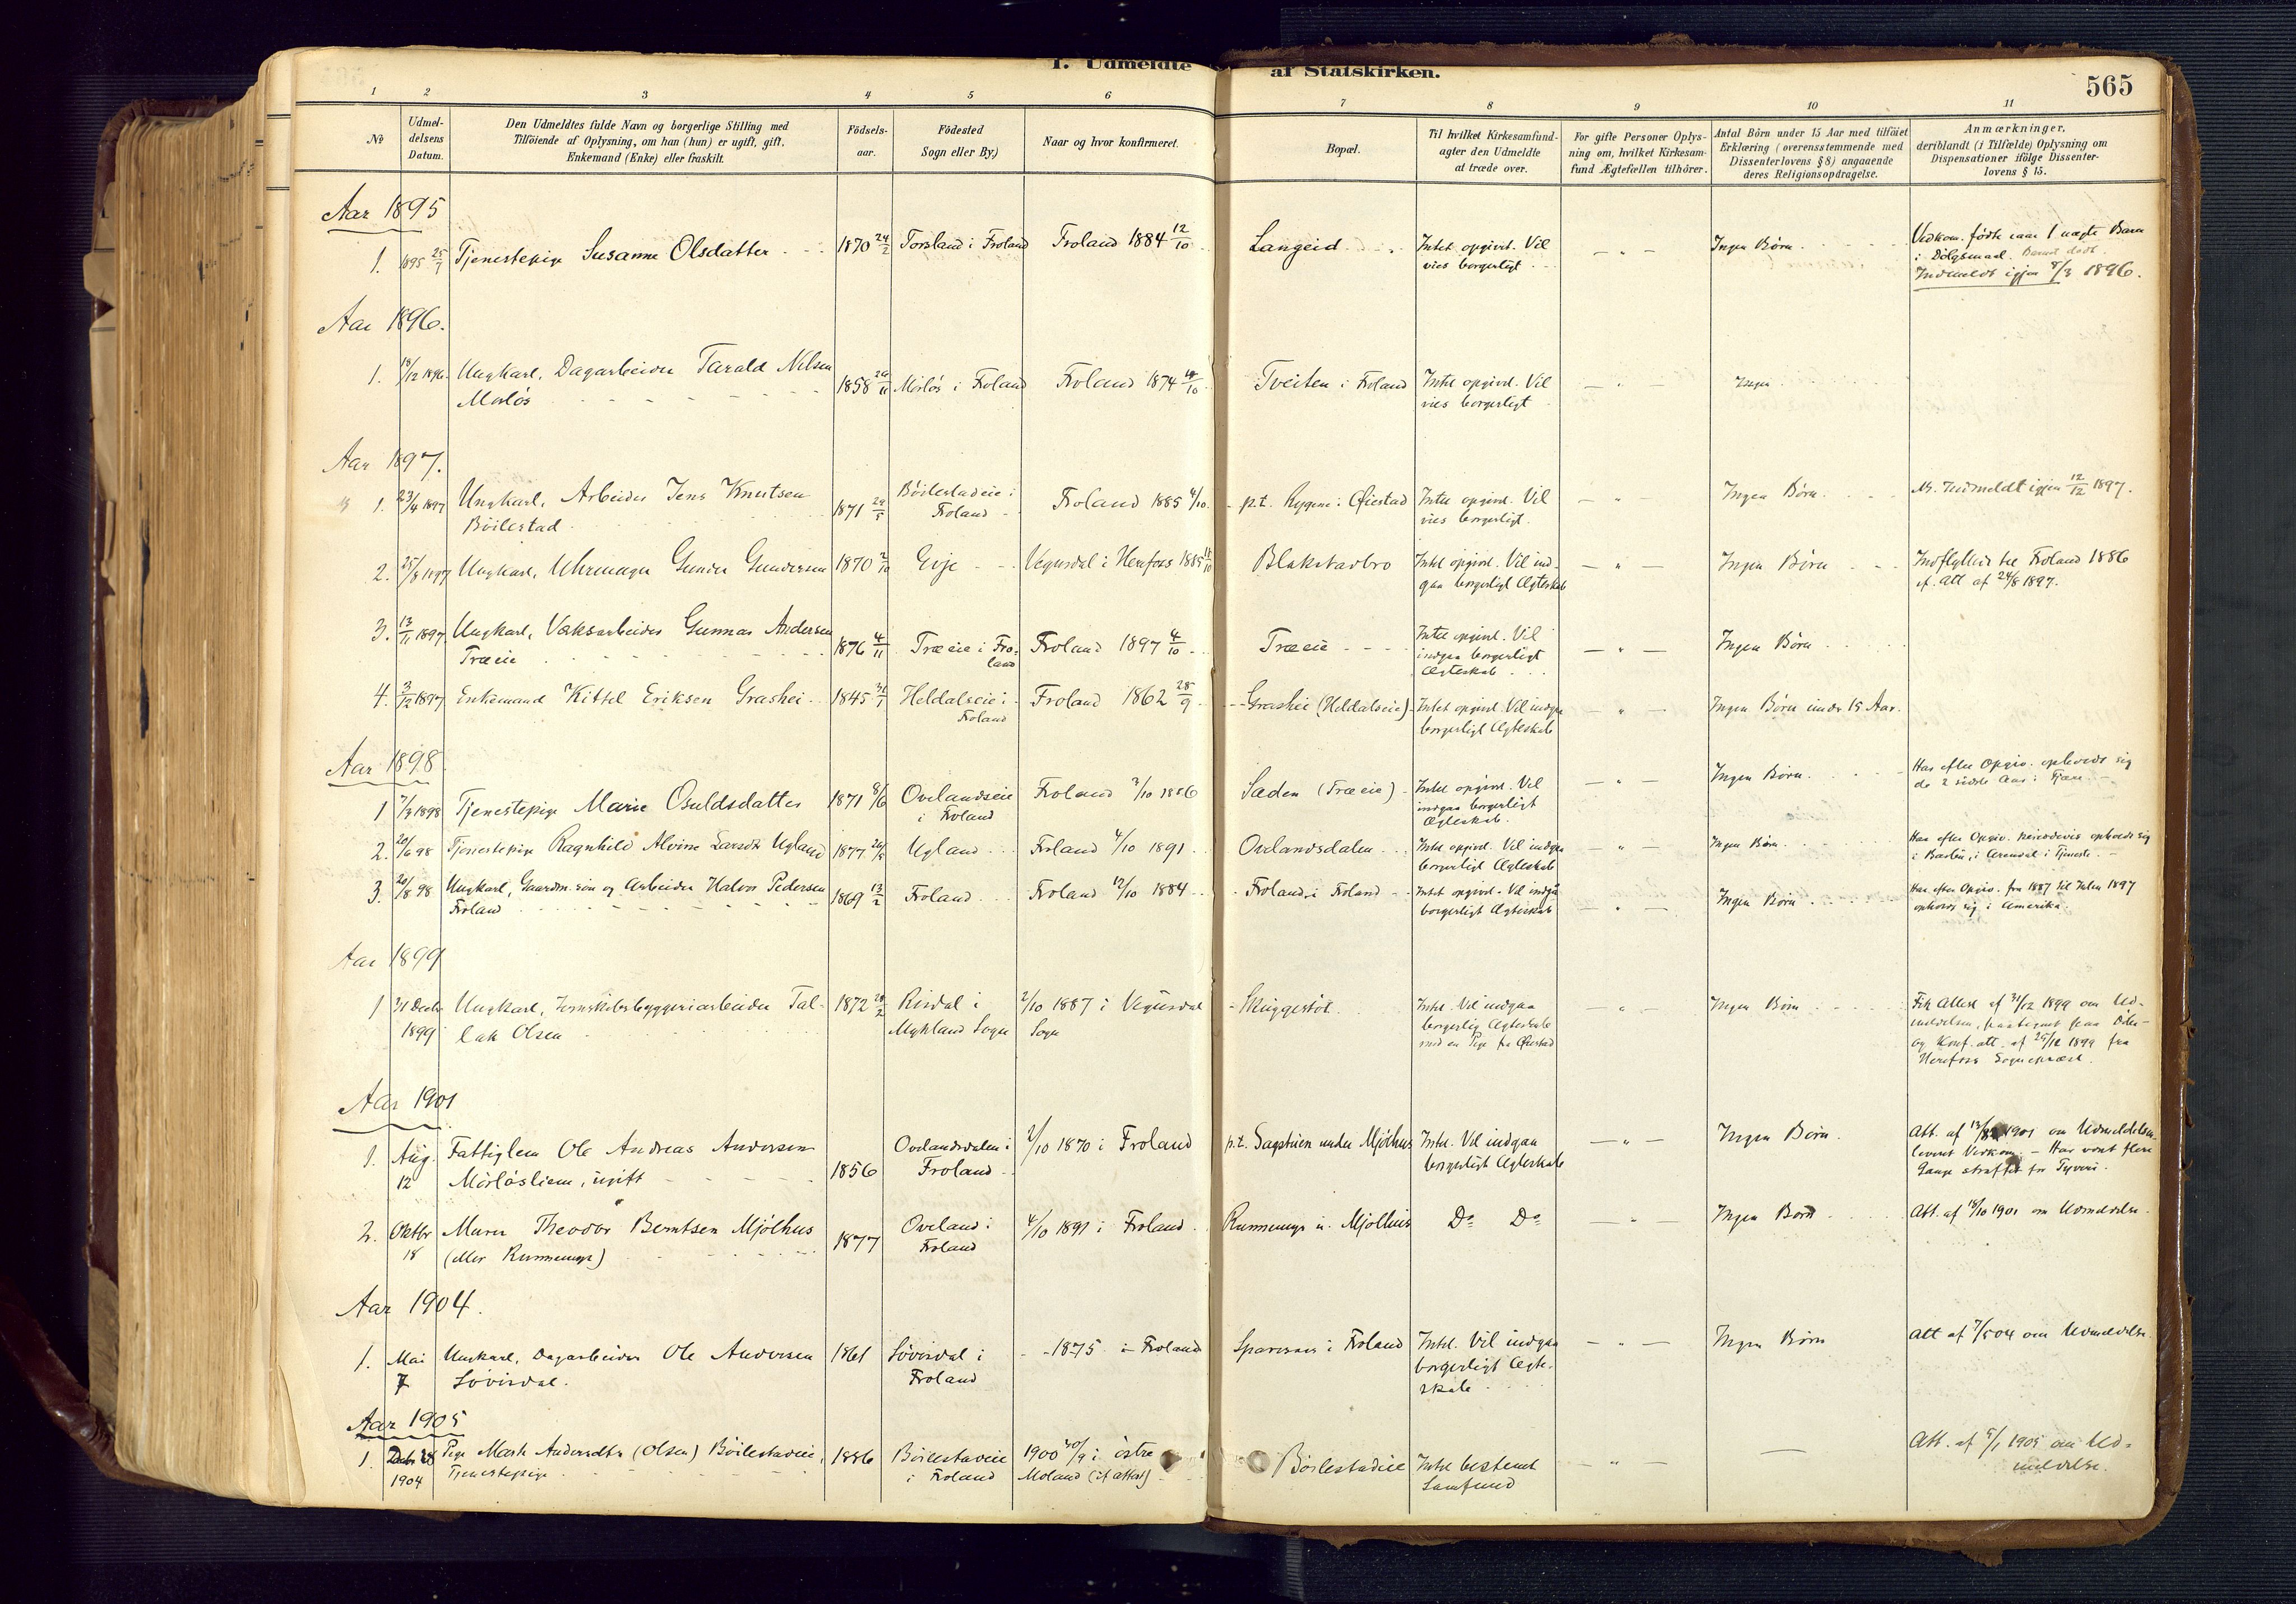 I. Udmeldte af Statskirken.
565
1 2 3 4 5 6 7 8 9 10 11
No
Udmel-
delsens
Datum.
Den Udmeldtes fulde Navn og borgerlige Stilling med
Tilföiende af Oplysning, om han (hun) er ugift, gift,
Enkemand (Enke) eller fraskilt.
Födsels-
aar.
Födested
Sogn eller By.)
Naar og hvor konfirmeret.
Bopæl.
Til hvilket Kirkesamfund-
agter den Udmeldte
at træde over.
For gifte Personer Oplys-
ning om, hvilket Kirkesam-
fund Ægtefællen tilhörer.
Antal Börn under 15 Aar med tilföiet
Erklæring (overensstemmende med
Dissenterlovens § 8) angaaende
deres Religionsopdragelse.
Anmærkninger,
deriblandt (i Tilfælde) Oplysning om
Dispensationer ifölge Dissenter-
lovens § 15.
Aar 1895
1. 1895 25/7 Tjenestepige Susanne Olsdatter 1870 24/2 Torsland i Froland Froland 1884 12/10 Langeid Intet opgivet. Vil
vies borgerligt. Ingen Børn
Vedkom. födte 1 uægte Barn
i Dölgsmaal. Barnet dödt
Indmeldt igjen 8/3 1896.
Aar 1896.
1. 18/12 1896. Ungkarl, Dagarbeider Tarald Nilsen
Mörlös 1858 Mörlös i Froland Froland 1874 Tveiten i Froland Intet opgivet. Vil
vies borgerligt Ingen
Aar 1897.
1. 23/4 1897 Ungkarl, Arbeider Jens Knutsen
Böilestad 1871 29/5 Böilestadeie i
Froland Froland 1885 4/10 p.t. Rygene i Øiestad Intet opgivet. Vil
vies borgerligt. Ingen Børn. Indmeldt igjen 12/12 1897.
2. 25/8 1897 Ungkarl, Uhrmager Gunder Gundersen 1870 2/10 Evje Vegusdal i Herefoss 1885 11/10 Blakstadbro Intet opgivet. Vil ind-
gaa borgerligt Ægteskab Ingen Børn
Indflyttet til Froland 1886
cf. Att af 24/8 1897.
3. 13/11 1897 Ungkarl, Værksarbeider Gunnar Andersen
Træeie 1876 4/11 Træeie i Fro-
land Froland 1897 4/10 Træeie Intet opgivet. Vil
indgaa borgerligt
Ægteskab Ingen Børn
4. 3/12 1897 Enkemand Kittel Eriksen Grashei 1845 31/7 Heldalseie i
Froland Froland 1862 28/9 Grashei (Heldalseie) Intet opgivet. Vil indgaa
borgerligt Ægteskab Ingen Børn under 15 Aar.
Aar 1898
1 7/3 1898 Tjenestepige Marie Osuldsdatter 1871 8/6 Ovelandseie
i Froland Froland 3/10 1886 Saden (Træeie) Intet opgivet. Vil
indgaa borgerligt
Ægteskab. Ingen Børn.
Har efter Opgiv. opholdt sig
de 2 sidste Aar i Fjære.
2. 20/6 98 Tjenestepige Ragnhild Alvine Larsdtr Ugland 1877 Ugland Froland 4/10 1891 Ovelandsdalen Intet opgivet. Vil indgaa
borgerligt Ægteskab Ingen Børn
Har efter Opgiv. periodevis opholdt sig
i Arendal i Tjeneste.
3. 20/8 98 Ungkarl, Gaardm. sön og Arbeider Halvor Pedersen
Froland 1869 13/2 Froland Froland 12/10 1884 Froland i Froland Intet opgivet. Vil indgå
borgerligt Ægteskab Ingen Børn
Har efter Opgiv. fra 1887 til Julen 1897
opholdt sig i Amerika.
Aar 1899
1 31 Decbr
1899 Ungkarl, Jernskibsbyggeriarbeider Tal-
lak Olsen 1872 Risdal i
Mykland Sogn 2/10 1887 i Vegusdal
Sogn Skuggestöl Intet. Vil indgaa
borgerlig Ægteskab
med en Pige fra Øiestad Ingen Børn
Fik Attest af 31/12 1899 om Ud-
meldelsen, paategnet paa Döbe-
og Konf. att. af 25/12 1899 fra
Herefoss Sognepræst.
Aar 1901
1. Aug.
12 Fattiglem Ole Andreas Andersen
Mörlösliene, ugift 1856 Ovelandsdalen i
Froland 2/10 1870 i Froland p.t. Sagstuen under Mjölhus Intet. Vil indgaa
borgerligt Ægteskab Ingen Børn.
Att. af 1901 om Udmeldelsen
leveret Vedkom. - Har været flere
Gange straffet for Tyveri.
2. Oktbr
18 Murer Theodor Berntsen Mjölhus
(eller Rønnemyr) 1877 Oveland i
Froland 4/10 1891 i Froland Rønnemyr u. Mjölhus Do Do Ingen Børn Att. af 18/10 1901 om Udmeldelse.
Aar 1904.
1. Mai
7 Ungkarl, Dagarbeider Ole Andersen
Lovisdal. 1861 Lövisdal i
Froland 1875 i Froland Sparsnes i Froland Intet. Vil indgaa
borgerligt Ægte-
skab Ingen Børn Att af 7/5 04 om Udmeldelse.
Aar 1905
1. Decbr 28
1904 Pige Marth Andersdtr (Olsen) Böilestadeie,
Tjenestepige 1886 Böilestadeie
i Froland 1900 30/9 i östre
Moland (if attest) Böilestadeie Intet bestemt
Samfund Att. af 5/1 1905 om Ud-
meldelse.